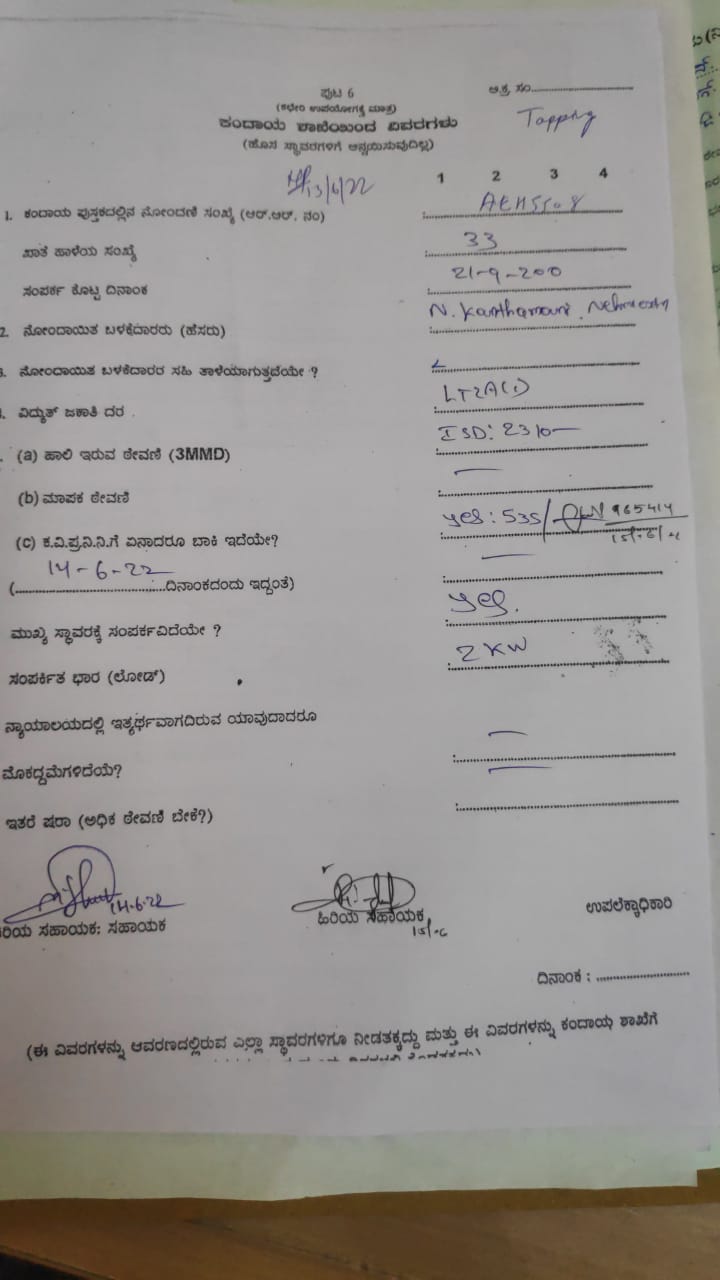 ಪುಟ 6
ಅ.ಕ್ರ. ಸಂ....................
(ಕಛೇರಿ ಉಪಯೋಗಕ್ಕೆ ಮಾತ್ರ)
ಕಂದಾಯ ಶಾಖೆಯಿಂದ ವಿವರಗಳು
Tapping
(ಹೊಸ ಸ್ಥಾವರಗಳಿಗೆ ಅನ್ವಯಿಸುವುದಿಲ್ಲ)
13/6/22
1 2 3 4
1. ಕಂದಾಯ ಪುಸ್ತಕದಲ್ಲಿನ ನೋಂದಣಿ ಸಂಖ್ಯೆ (ಆರ್.ಆರ್. ನಂ)
ಖಾತೆ ಹಾಳೆಯ ಸಂಖ್ಯೆ 33
ಸಂಪರ್ಕ ಕೊಟ್ಟ ದಿನಾಂಕ 21-9-200
2. ನೋಂದಾಯಿತ ಬಳಕೆದಾರರು (ಹೆಸರು) N. Kanthamani
ನೋಂದಾಯಿತ ಬಳಕೆದಾರರ ಸಹಿ ತಾಳೆಯಾಗುತ್ತದೆಯೇ ?
ವಿದ್ಯುತ್ ಜಕಾತಿ ದರ LT2A(1)
(a) ಹಾಲಿ ಇರುವ ಠೇವಣಿ (3MMD) ISD: 2310—
(b) ಮಾಪಕ ಠೇವಣಿ —
(c) ಕ.ವಿ.ಪ್ರ.ನಿ.ನಿ.ಗೆ ಏನಾದರೂ ಬಾಕಿ ಇದೆಯೇ? yes: 535/ 965414
14-6-22
(....................ದಿನಾಂಕದಂದು ಇದ್ದಂತೆ) —
ಮುಖ್ಯ ಸ್ಥಾವರಕ್ಕೆ ಸಂಪರ್ಕವಿದೆಯೇ ? yes.
ಸಂಪರ್ಕಿತ ಭಾರ (ಲೋಡ್) 2 KW
ನ್ಯಾಯಾಲಯದಲ್ಲಿ ಇತ್ಯರ್ಥವಾಗದಿರುವ ಯಾವುದಾದರೂ
ಮೊಕದ್ದಮೆಗಳಿದೆಯೆ? —
ಇತರೆ ಷರಾ (ಅಧಿಕ ಠೇವಣಿ ಬೇಕೆ?) —
14.6.22
ಸಹಾಯಕ: ಸಹಾಯಕ
ಹಿರಿಯ ಸಹಾಯಕ
ಉಪಲೆಕ್ಕಾಧಿಕಾರಿ
ದಿನಾಂಕ : ....................
(ಈ ವಿವರಗಳನ್ನು ಆವರಣದಲ್ಲಿರುವ ಎಲ್ಲಾ ಸ್ಥಾವರಗಳಿಗೂ ನೀಡತಕ್ಕದ್ದು ಮತ್ತು ಈ ವಿವರಗಳನ್ನು ಕಂದಾಯ ಶಾಖೆಗೆ